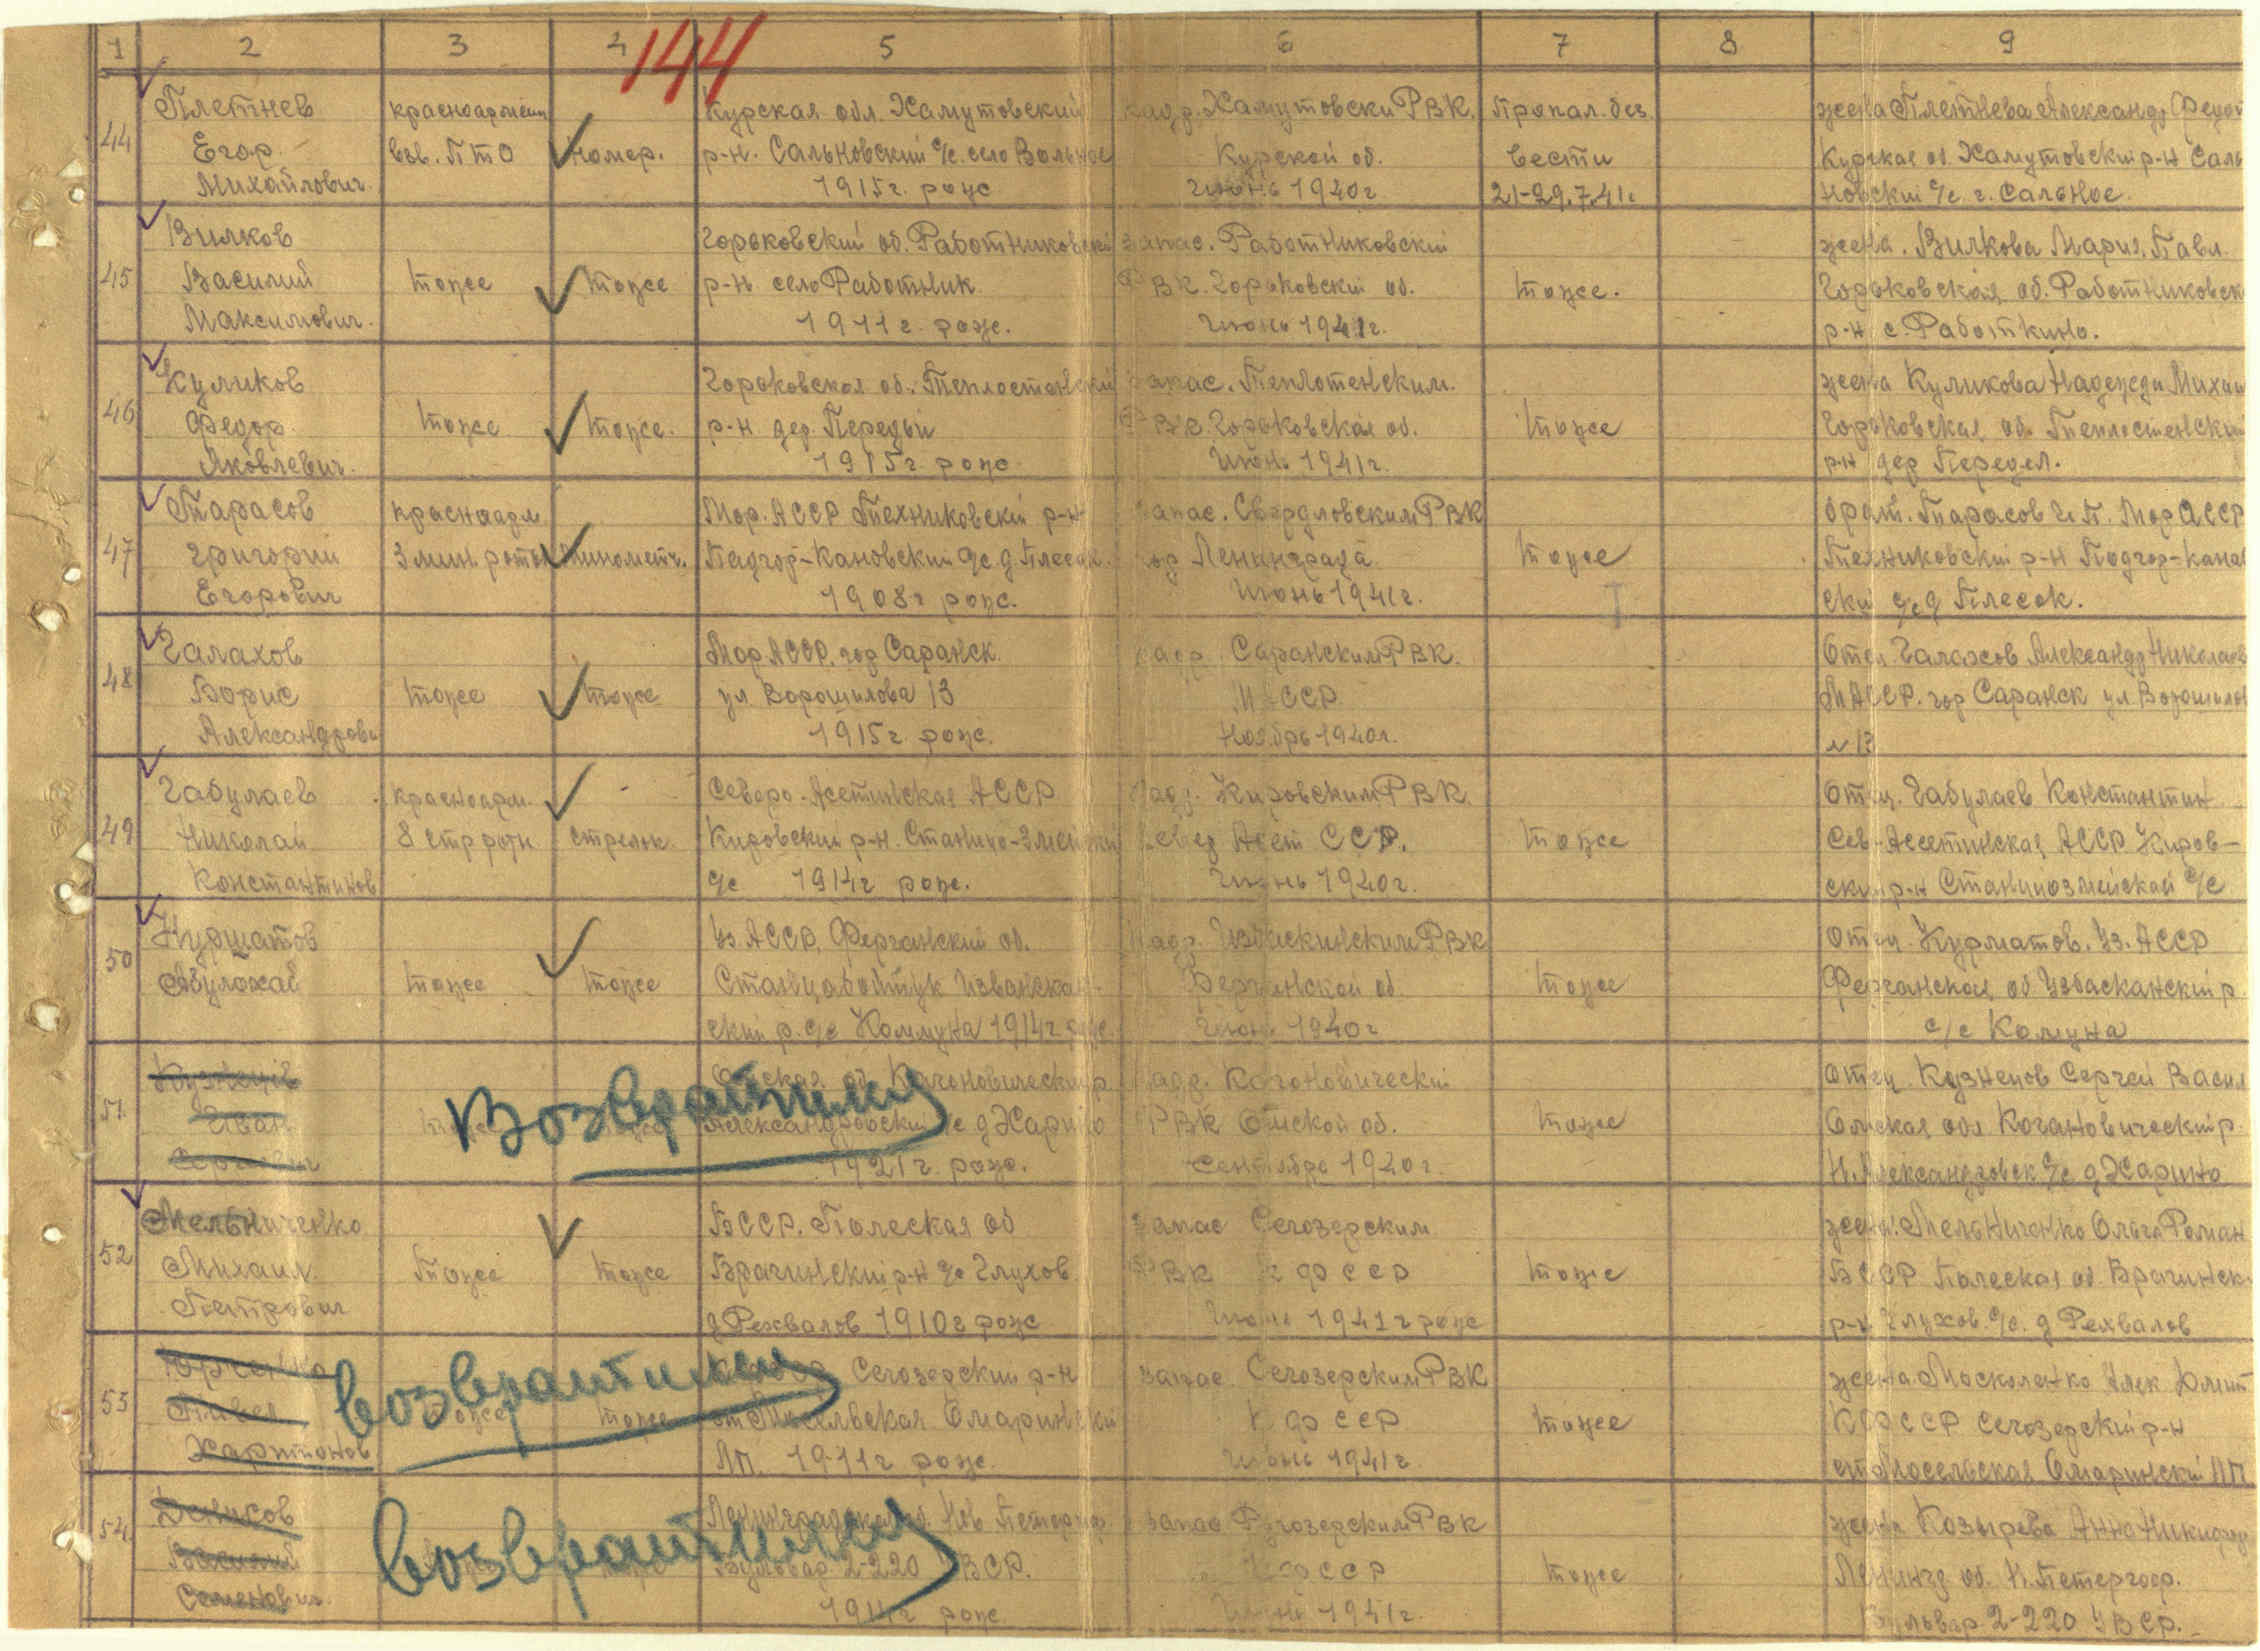 1 2 3 4 5 6 7 8 9
144
44
Плетнев
Егор
Михайлович.
красноармеец
взв. ПТО
номер.
Курская обл. Хамутовский
р-н. Сальновский с/с. село Вольное
1915 г. рож
кадр. Хамутовски РВК
Курской об.
Июнь 1940 г
Пропал. без.
вести
21-29.7.41г
жена Плетнева Александр Федо
Курская об. Хамутовский р-н Саль
новский с/с г. Сальное.
45
Вилков
Василий
Максимович.
тоже
тоже
Горьковский об. Работниковский
р-н село Работник
1911 г. рож.
запас. Работниковский
РВК. Горьковский об.
Июнь 1941г.
тоже.
жена. Вилкова Мария. Павл.
Горьковская об. Работниковск
р-н с. Работкино.
46
Куликов
Федор
Яковлевич.
тоже
тоже.
Горьковская об. Теплостенский
р-н дер.
1915 г. рож
запас. Теплотенским.
РВК. Горьковская об.
Июнь 1941г.
тоже
жена Куликова Надежда Михаи
Горьковская об. Теплостенский
р-н дер Передел.
47
Тарасов
Григорий
Егорович
красноарм
3 мин. роты
минометч.
Мор. АССР Техниковский р-н
Падгор-Кановский с/с д. Плесок.
1908 г рож.
запас. Свердловским РВК
гор Ленинграда
Июнь 1941г.
тоже
брат. Тарасов Г. П. Мор АССР
Техниковский р-н Подгор-кана
ски с/с д Плесок.
48
Галахов
Борис
Александрови
тоже
тоже
Мор АССР. гор Саранск
ул Ворошилова 13
1915 г. рож.
кадр. Саранским РВК.
М АССР
Ноябрь 1940г.
Отец. Галахов Александр Николаев
МАССР. гор Саранск ул. Ворошилов
№ 13
49
Габулаев
Николай
Константинов
красноарм.
8 стр роты
стрелок.
Северо-Асетинская АССР
Кировский р-н. Станицо-Змейский
с/с 1914 г рож.
кадр. Кировским РВК
Север Асет ССР.
Июнь 1940г.
тоже
отец. Габулаев Константин
Сев-Асетинская АССР Киров-
ский р-н Станицозмейской с/с
50
Курматов
Абулохай
тоже
тоже
Уз АССР, Ферганский об.
1914 г рож.
кадр. Избаскинским РВК
Ферганской об
Июнь 1940 г
тоже
Отец. Курматов. Уз. АССР
Ферганская об Узбасканский р.
с/с Комуна
51
Кузнецов
Иван
Сергеевич
Возвратился
Омская об. Кагоновический р
Александровский с/с д Харино
1921 г. рож.
кадр. Кагоновический
РВК Омской об.
Сентябрь 1940 г.
тоже
отец. Кузнецов Сергей Васил
Омская обл Когановический р.
Н. Александровск с/с д Харино
52
Мельниченко
Михаил
Петрович
Тоже
тоже
БССР. Полеская об
Брагинский р-н с/с Глухов
д Рехвалов 1910 г рож
запас Сегозерским
РВК К ф ССР
Июнь 1941 г рож
тоже
жена. Мельниченко Ольга Роман
БССР Полеская об. Брагинск
р-н Глухов. с/с. д Рехвалов
53
Юрченко
Павел
Харитонов
возвратился
тоже
тоже
Сегозерский р-н
1911 г рож.
запас Сегозерским РВК
К ф ССР
Июнь 1941г.
тоже
жена Москоленко Алек
КФССР Сегозерский р-н
ст Масельская Омаринский ЛП
54
Денисов
Василий
Семенович.
возвратился
Ленинградская об. Нов Петергоф
Бульвар 2-220 УВСР.
1914 г рож
запас Ругозерским РВК
К ф ССР
Июнь 1941г.
тоже
жена Козырева Анна
Ленингр об. Н. Петергоф.
Бульвар 2-220 УВСР.